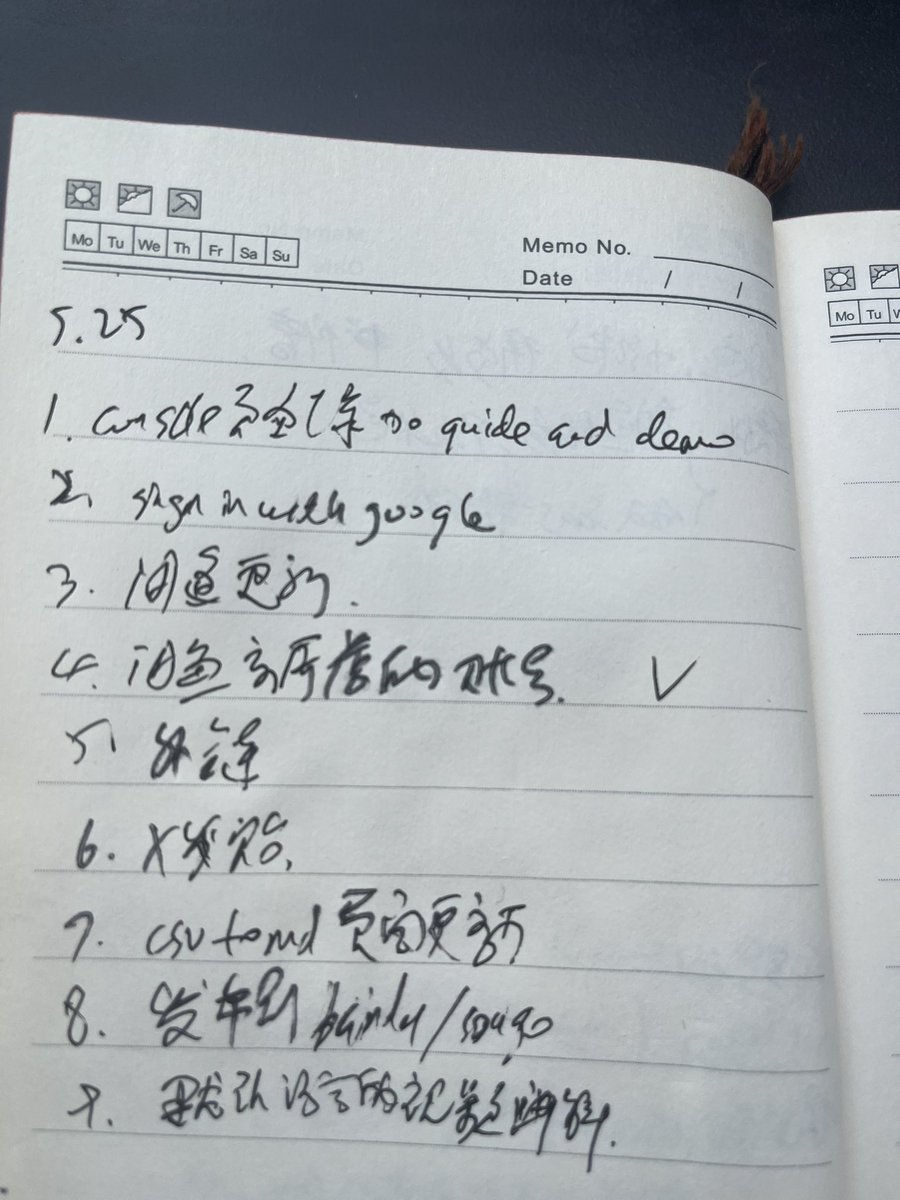 Mo Tu We Th Fr Sa Su
Memo No.
Date / /
5.25
1. 乙筛 no guide and demo
2. sign in with google
3. 闲鱼更新.
4. 闲鱼 的账号. √
5. 外链
6. X发帖.
7. csv to md 页面更新
8. 发布到 baidu/sougo
9. 默认语言的视频讲解.
Mo Tu